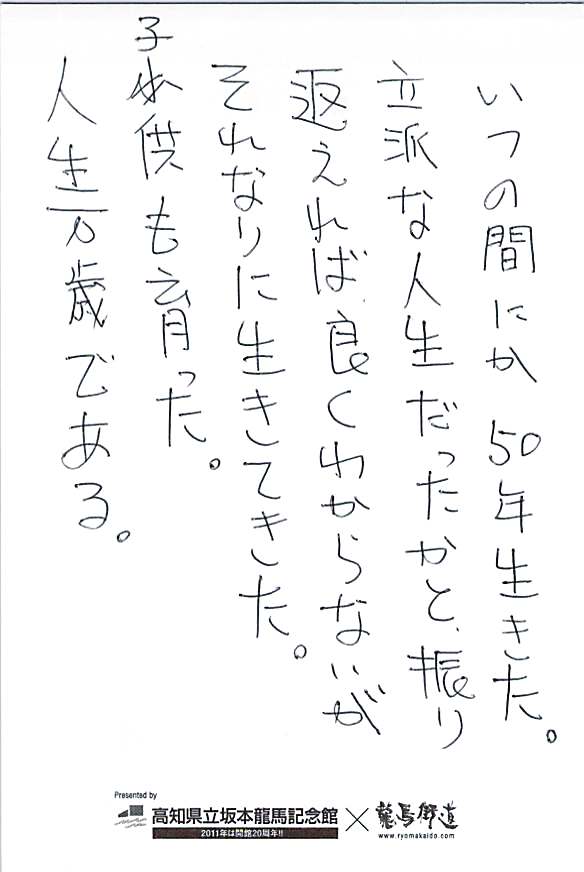 いつの間にか50年生きた。
立派な人生だったかと、振り
返えれば、良くわからないが
それなりに生きてきた。
子供も育った。
人生万歳である。
Presented by
高知県立坂本龍馬記念館
2011年は開館20周年!!
×
龍馬街道
www.ryomakaido.com